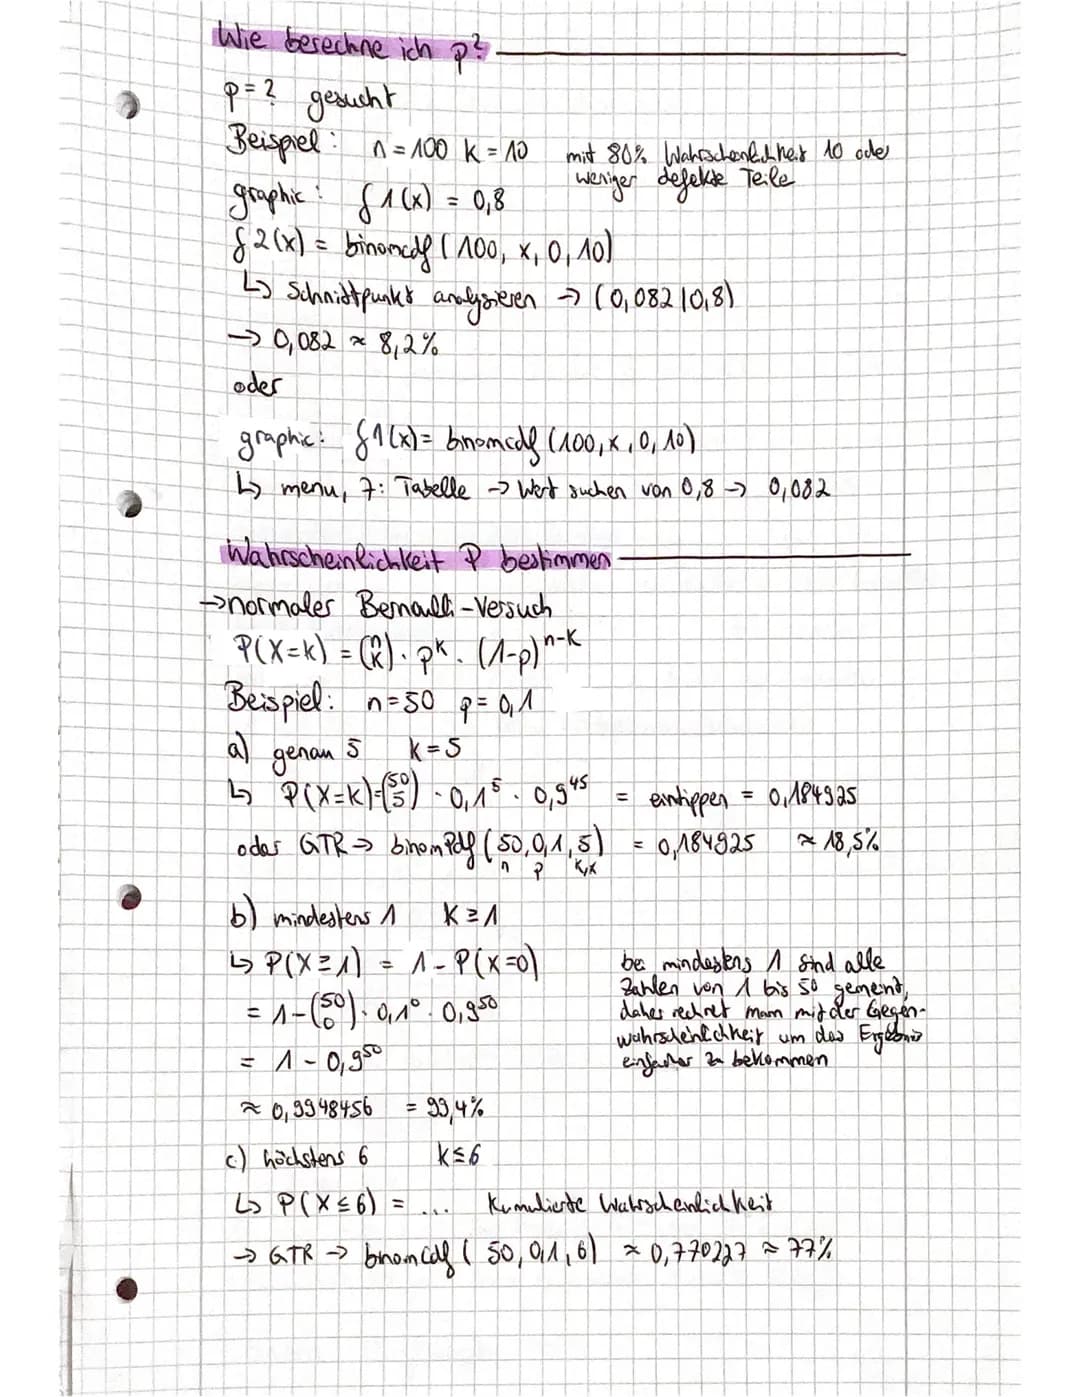 Wie berechne ich p?
p = ? gesucht
Beispiel: n = 100 k = 10 mit 80% Wahrscheinlichkeit 10 oder
weniger defekte Teile
graphic: f1(x) = 0,8
f2(x) = binomcdf (100, x, 0, 10)
↳ Schnittpunkt analysieren → (0,082|0,8)
→ 0,082 ≈ 8,2%
oder
graphic: f1(x) = binomcdf (100, x, 0, 10)
↳ menu, 7: Tabelle → Wert suchen von 0,8 → 0,082
Wahrscheinlichkeit P bestimmen
→ normaler Bernoulli-Versuch
P(X=k) = (n k) · p^k · (1-p)^n-k
Beispiel: n = 50 p = 0,1
a) genau 5 k = 5
↳ P(X=k) = (50 5) · 0,1^5 · 0,9^45 = eintippen = 0,184925
oder GTR → binomPdf (50,0,1,5) = 0,184925 ≈ 18,5%
n p k,x
b) mindestens 1 k ≥ 1
↳ P(X≥1) = 1 - P(X=0)
= 1-(50 0) · 0,1^0 · 0,9^50
= 1 - 0,9^50
≈ 0,9948456 = 99,4%
bei mindestens 1 sind alle
Zahlen von 1 bis 50 gemeint,
daher rechnet man mit der Gegen-
wahrscheinlichkeit um das Ergebnis
einfacher zu bekommen
c) höchstens 6 k≤6
↳ P(X≤6) = ... Kumulierte Wahrscheinlichkeit
→ GTR → binomcdf (50, 0,1, 6) ≈ 0,770227 ≈ 77%